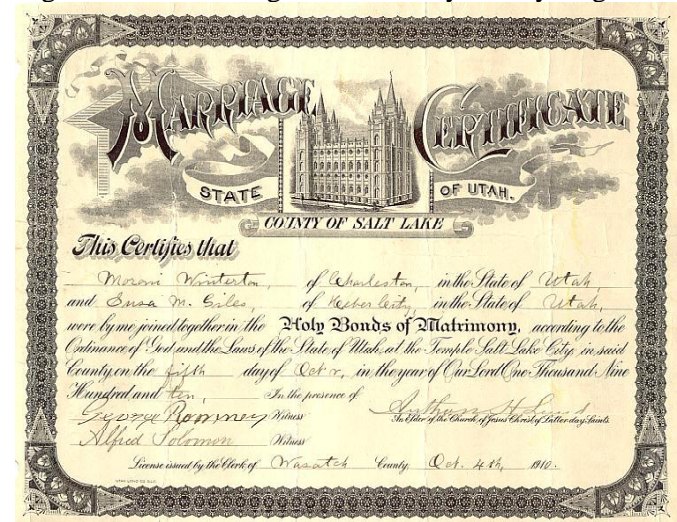 MARRIAGE CERTIFICATE
STATE OF UTAH.
COUNTY OF SALT LAKE
This Certifies that
Moroni Winterton, of Charleston, in the State of Utah,
and Ensa M. Giles, of Heber City in the State of Utah,
were by me joined together in the Holy Bonds of Matrimony, according to the
Ordinance of God and the Laws of the State of Utah, at the Temple Salt Lake City, in said
County on the fifth day of Oct r, in the year of Our Lord One Thousand Nine
Hundred and ten, In the presence of
George Romney Witness Anthon H. Lund
An Elder of the Church of Jesus Christ of Latter-day Saints.
Alfred Solomon Witness
License issued by the Clerk of Wasatch County, Oct. 4th, 1910.